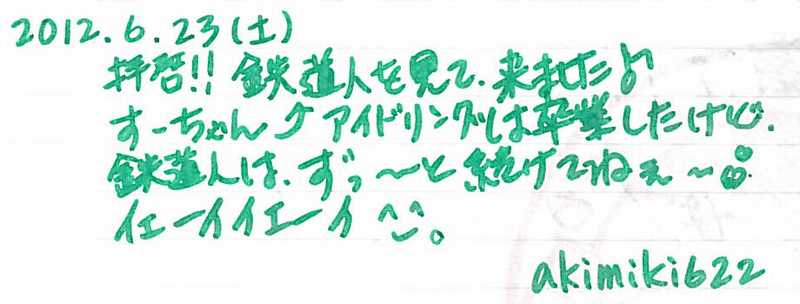 2012.6.23(土)
拝啓!! 鉄道人を見て、来ました♪
すーちゃん↗アイドリングは卒業したけど、
鉄道人は、ずっ〜と続けてねぇ〜
イェーイイェーイ^^。
akimiki622